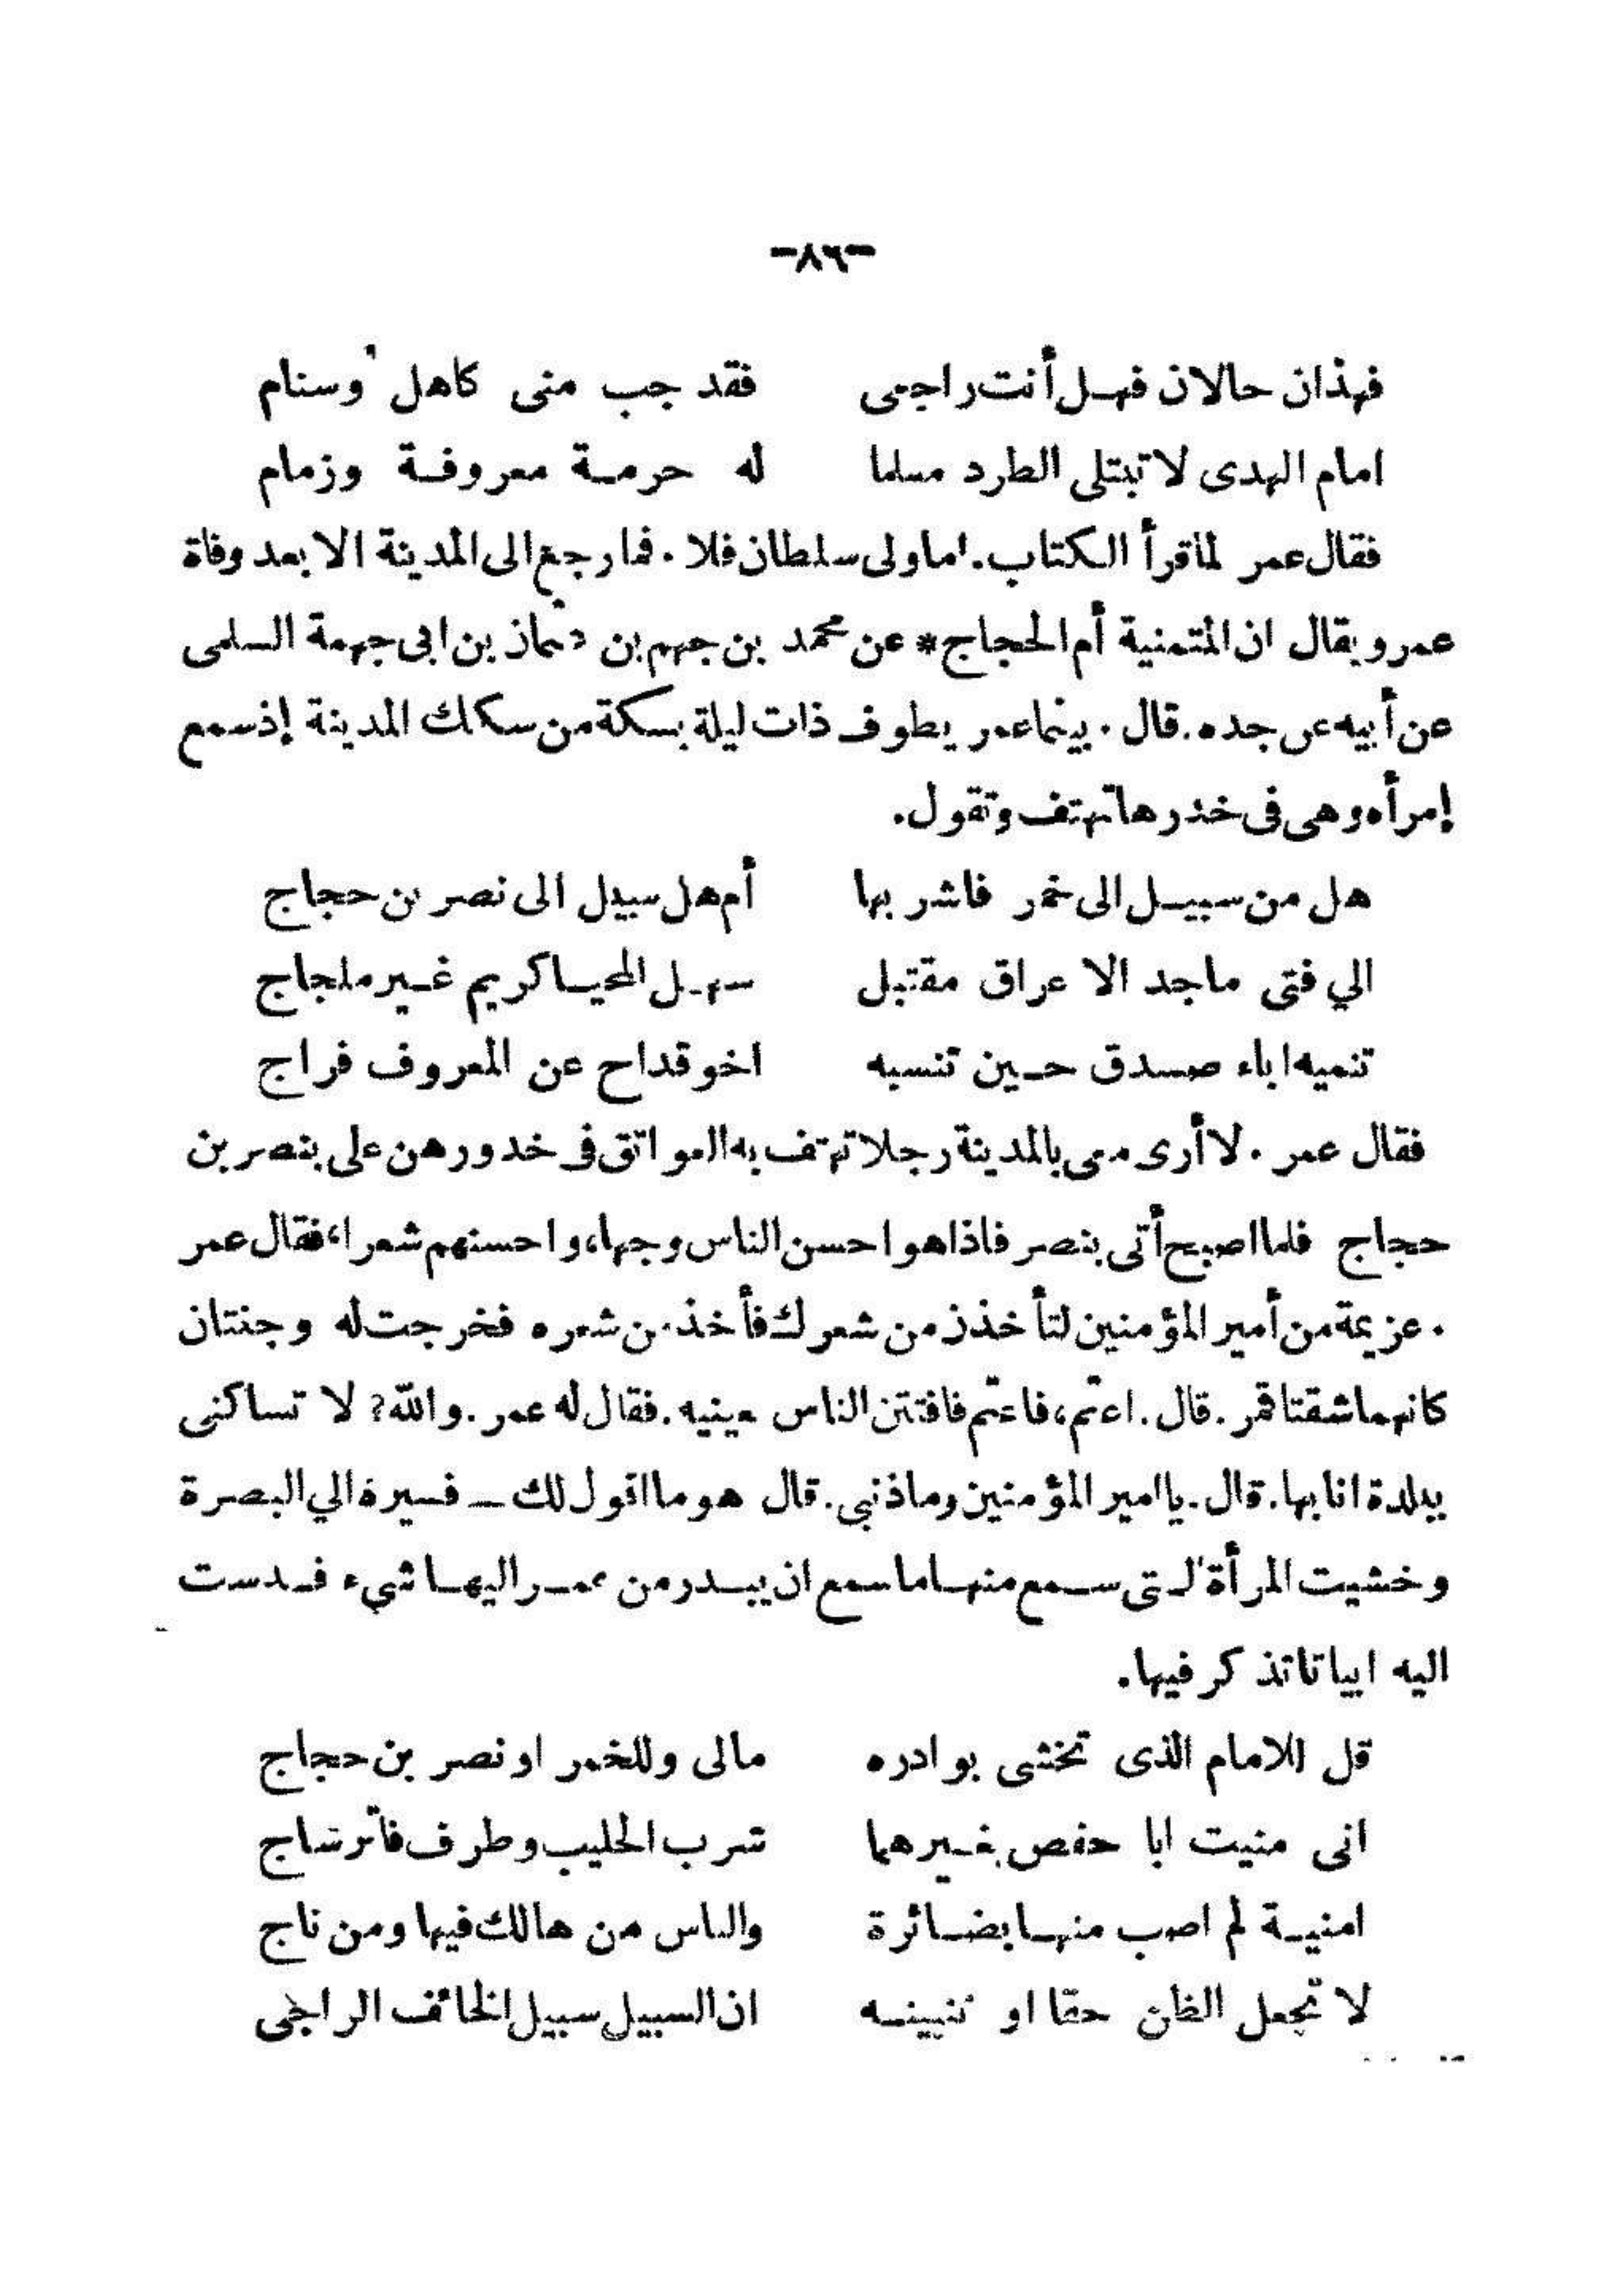 -٨٦-
فهذان حالان فهل أنت راجعى فقد جب منى كاهل وسنام
امام الهدى لا تبتلى الطرد مسلما له حرمة معروفة وزمام
فقال عمر لما قرأ الكتاب. اما ولى سلطان فلا. فما رجع الى المدينة الا بعد وفاة
عمر ويقال ان المتمنية أم الحجاج * عن محمد بن جهم بن دثماز بن ابى جهمة السلمى
عن أبيه عن جده. قال. بينما عمر يطوف ذات ليلة بسكة من سكك المدينة إذ سمع
إمرأه وهى فى خدرها تهتف وتقول.
هل من سبيل الى خمر فاشربها أم هل سبيل الى نصر بن حجاج
الي فتى ماجد الاعراق مقتبل سهل المحيا كريم غير ملجاج
تنميه اباء صدق حين تنسبه اخو قداح عن المعروف فراج
فقال عمر. لا أرى معى بالمدينة رجلا تهتف به العواتق فى خدورهن على بنصر بن
حجاج فلما اصبح أتى بنصر فاذا هو احسن الناس وجها، واحسنهم شعرا، فقال عمر
. عزيمة من أمير المؤمنين لتأخذن من شعرك فأخذ من شعره فخرجت له وجنتان
كانهما شقتا قمر. قال. اعتم، فاعتم فافتتن الناس بعينيه. فقال له عمر. والله? لا تساكنى
ببلدة انا بها. قال. يا امير المؤمنين وما ذنبي. قال هو ما اقول لك ـ فسيرة الي البصرة
وخشيت المرأة التى سمع منها ما سمع ان يبدر من عمر اليها شيء فدست
اليه ابياتا تذكر فيها.
قل للامام الذى تخشى بوادره مالى وللخمر او نصر بن حجاج
انى منيت ابا حفص بغيرهما شرب الحليب وطرف فاتر ساج
امنية لم اصب منها بضائرة والناس من هالك فيها ومن ناج
لا تجعل الظن حقا او تبينه ان السبيل سبيل الخائف الراجى